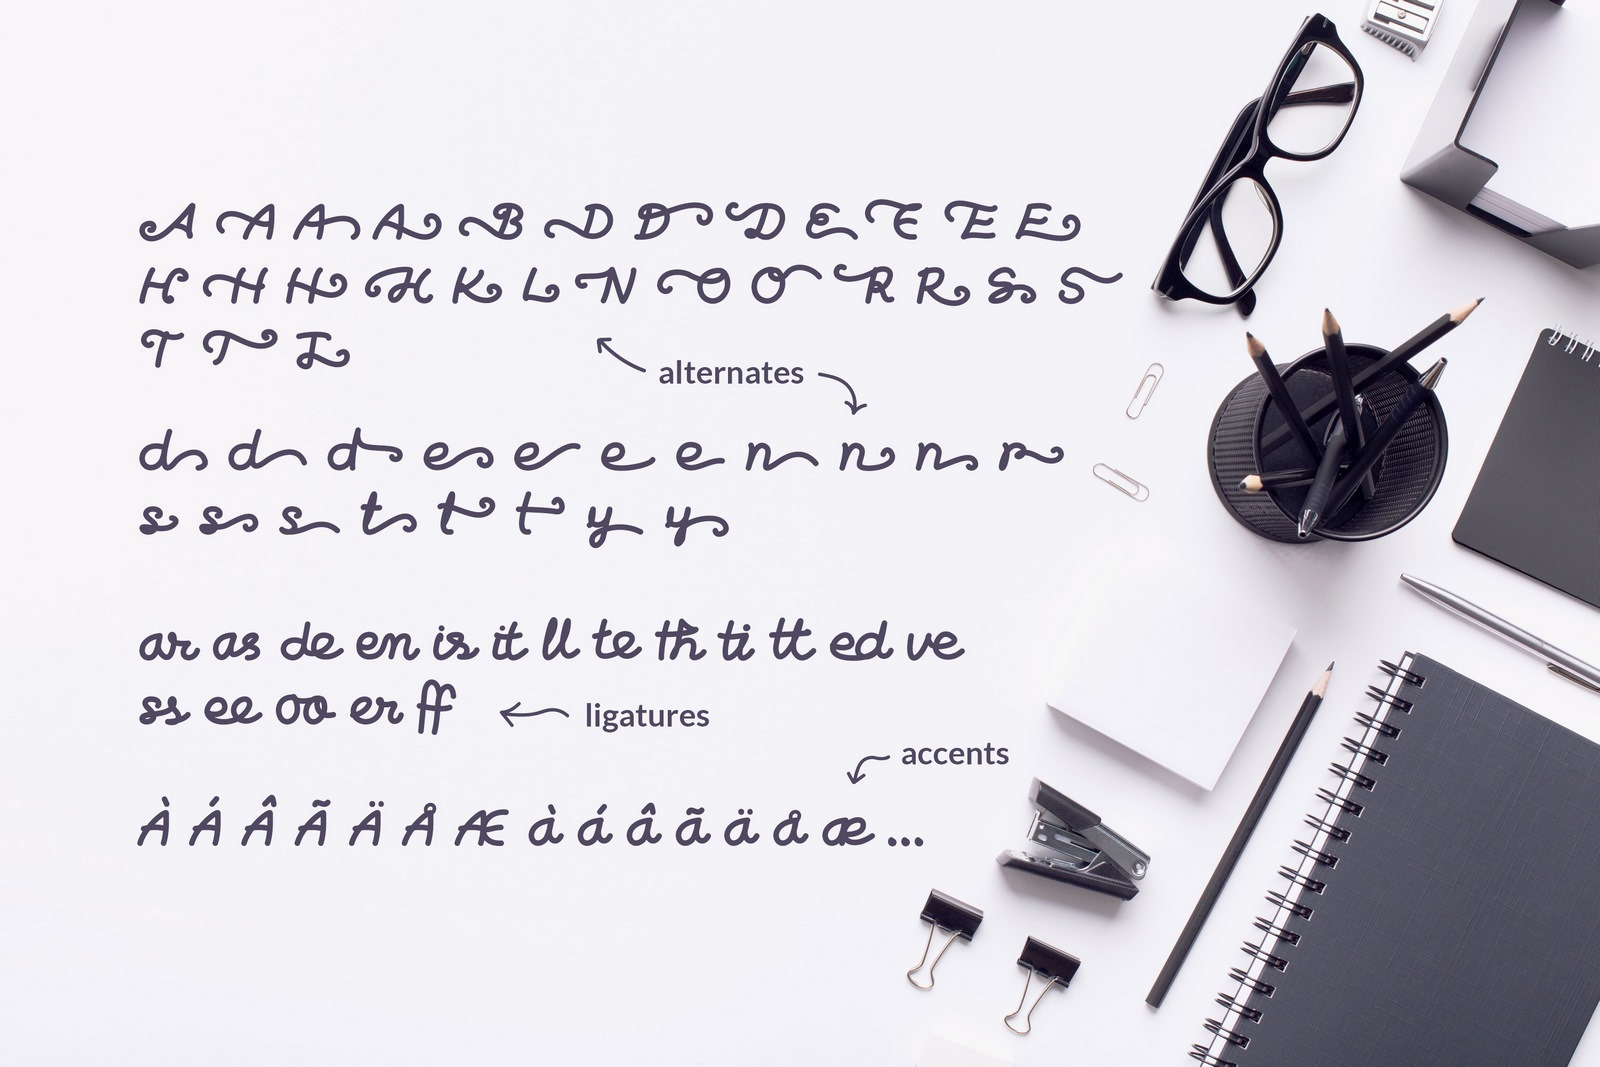 A A A A B D D D E E E E
H H H H K L N O O R R S S
T T I
alternates
d d d e e e e n n n r
s s s t t t y y
ar as de en is it ll te th ti tt ed ve
ss ee oo er ff
ligatures
accents
À Á Â Ã Ä Å Æ à á â ã ä å æ...